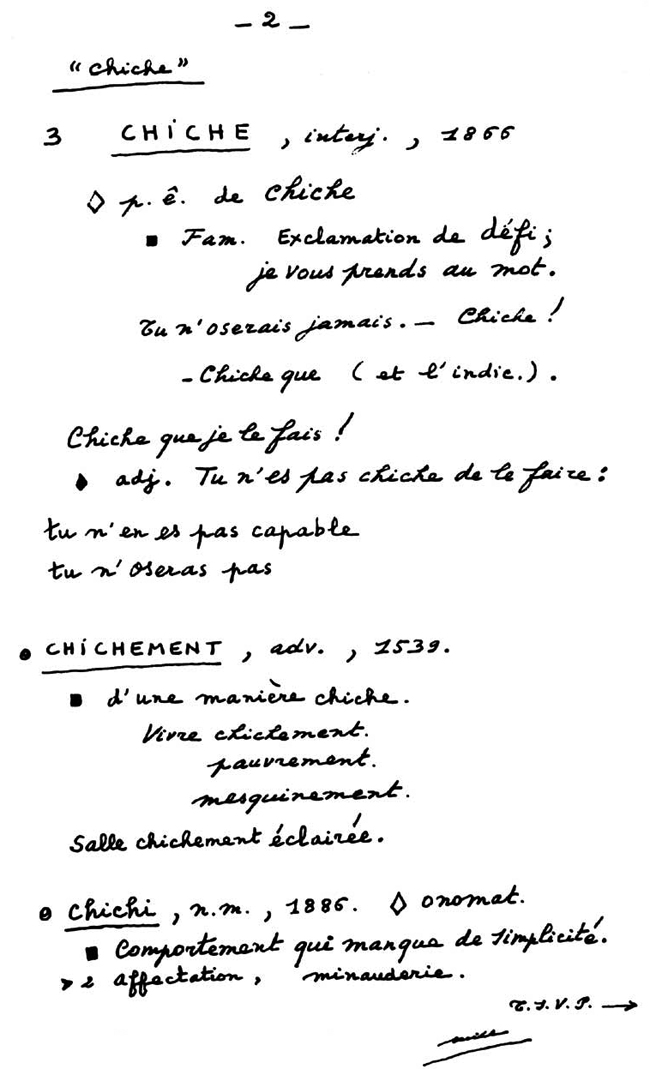 – 2 –
"Chiche"
3 CHICHE, interj., 1866
◊ p. ê. de chiche
▪ Fam. Exclamation de défi;
je vous prends au mot.
Tu n'oserais jamais. – Chiche !
– Chiche que (et l'indic.).
Chiche que je le fais !
♦ adj. Tu n'es pas chiche de le faire :
tu n'en es pas capable
tu n'oseras pas
• CHICHEMENT, adv., 1539.
▪ d'une manière chiche.
Vivre chichement.
pauvrement.
mesquinement.
Salle chichement éclairée.
• Chichi, n.m., 1886. ◊ onomat.
▪ Comportement qui manque de simplicité.
> 2 affectation, minauderie.
T.S.V.P. →